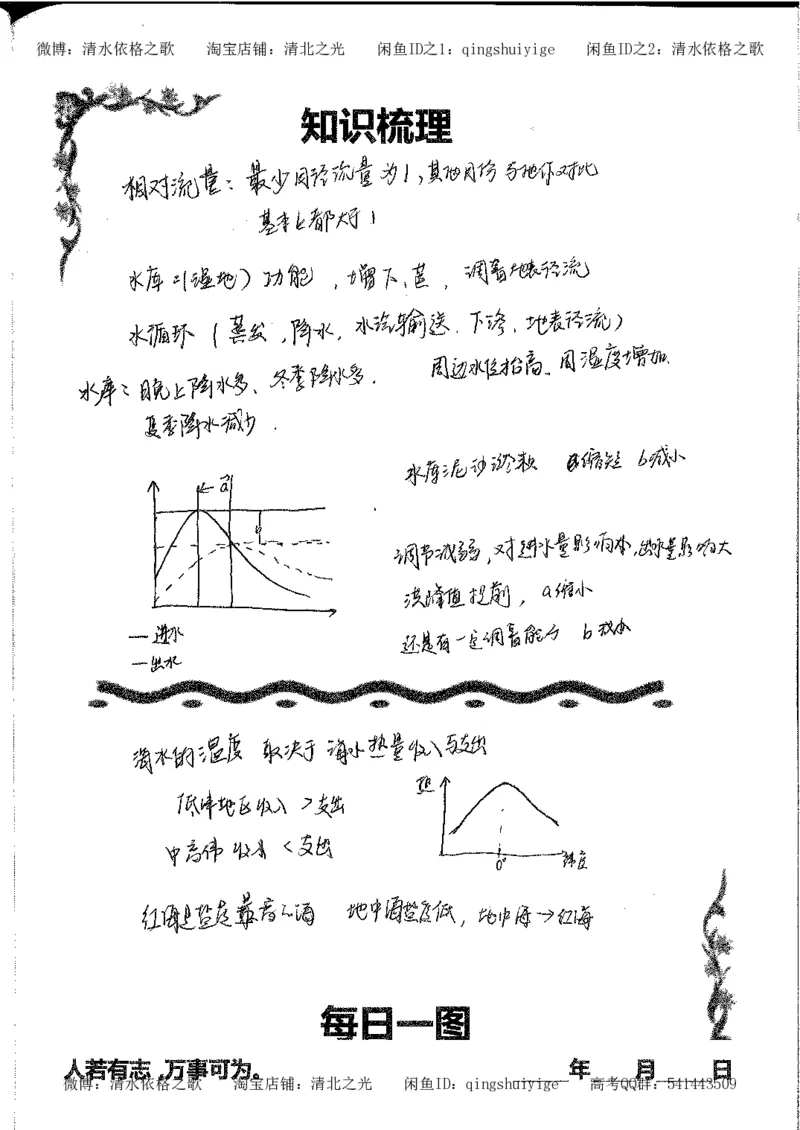 微博：清水依格之歌 淘宝店铺：清北之光 闲鱼ID之1：qingshuiyige 闲鱼ID之2：清水依格之歌
知识梳理
相对流量：最少月径流量为1，其他月份与他作对比
基本上都大于1
水库（湿地）功能，增下、蒸，调蓄地表径流
水循环（蒸发，降水，水汽输送，下渗，地表径流）
水库：日晚上降水多、冬季降水多． 周边水位抬高、周湿度增加．
夏季降水减少．
水库泥沙淤积 a缩短 b减小
a
b
调节减弱，对进水量影响小，出水量影响大
洪峰值提前，a缩小
还是有一定调蓄能力 b减小
—进水
—出水
海水的温度 取决于海水热量收入与支出
热
低纬地区收入＞支出
中高纬收入＜支出
0°
纬度
红海是盐度最高的海 地中海盐度低，地中海→红海
每日一图
人若有志，万事可为。 年 月 日
微博：清水依格之歌 淘宝店铺：清北之光 闲鱼ID：qingshuiyige 高考QQ群：541443509